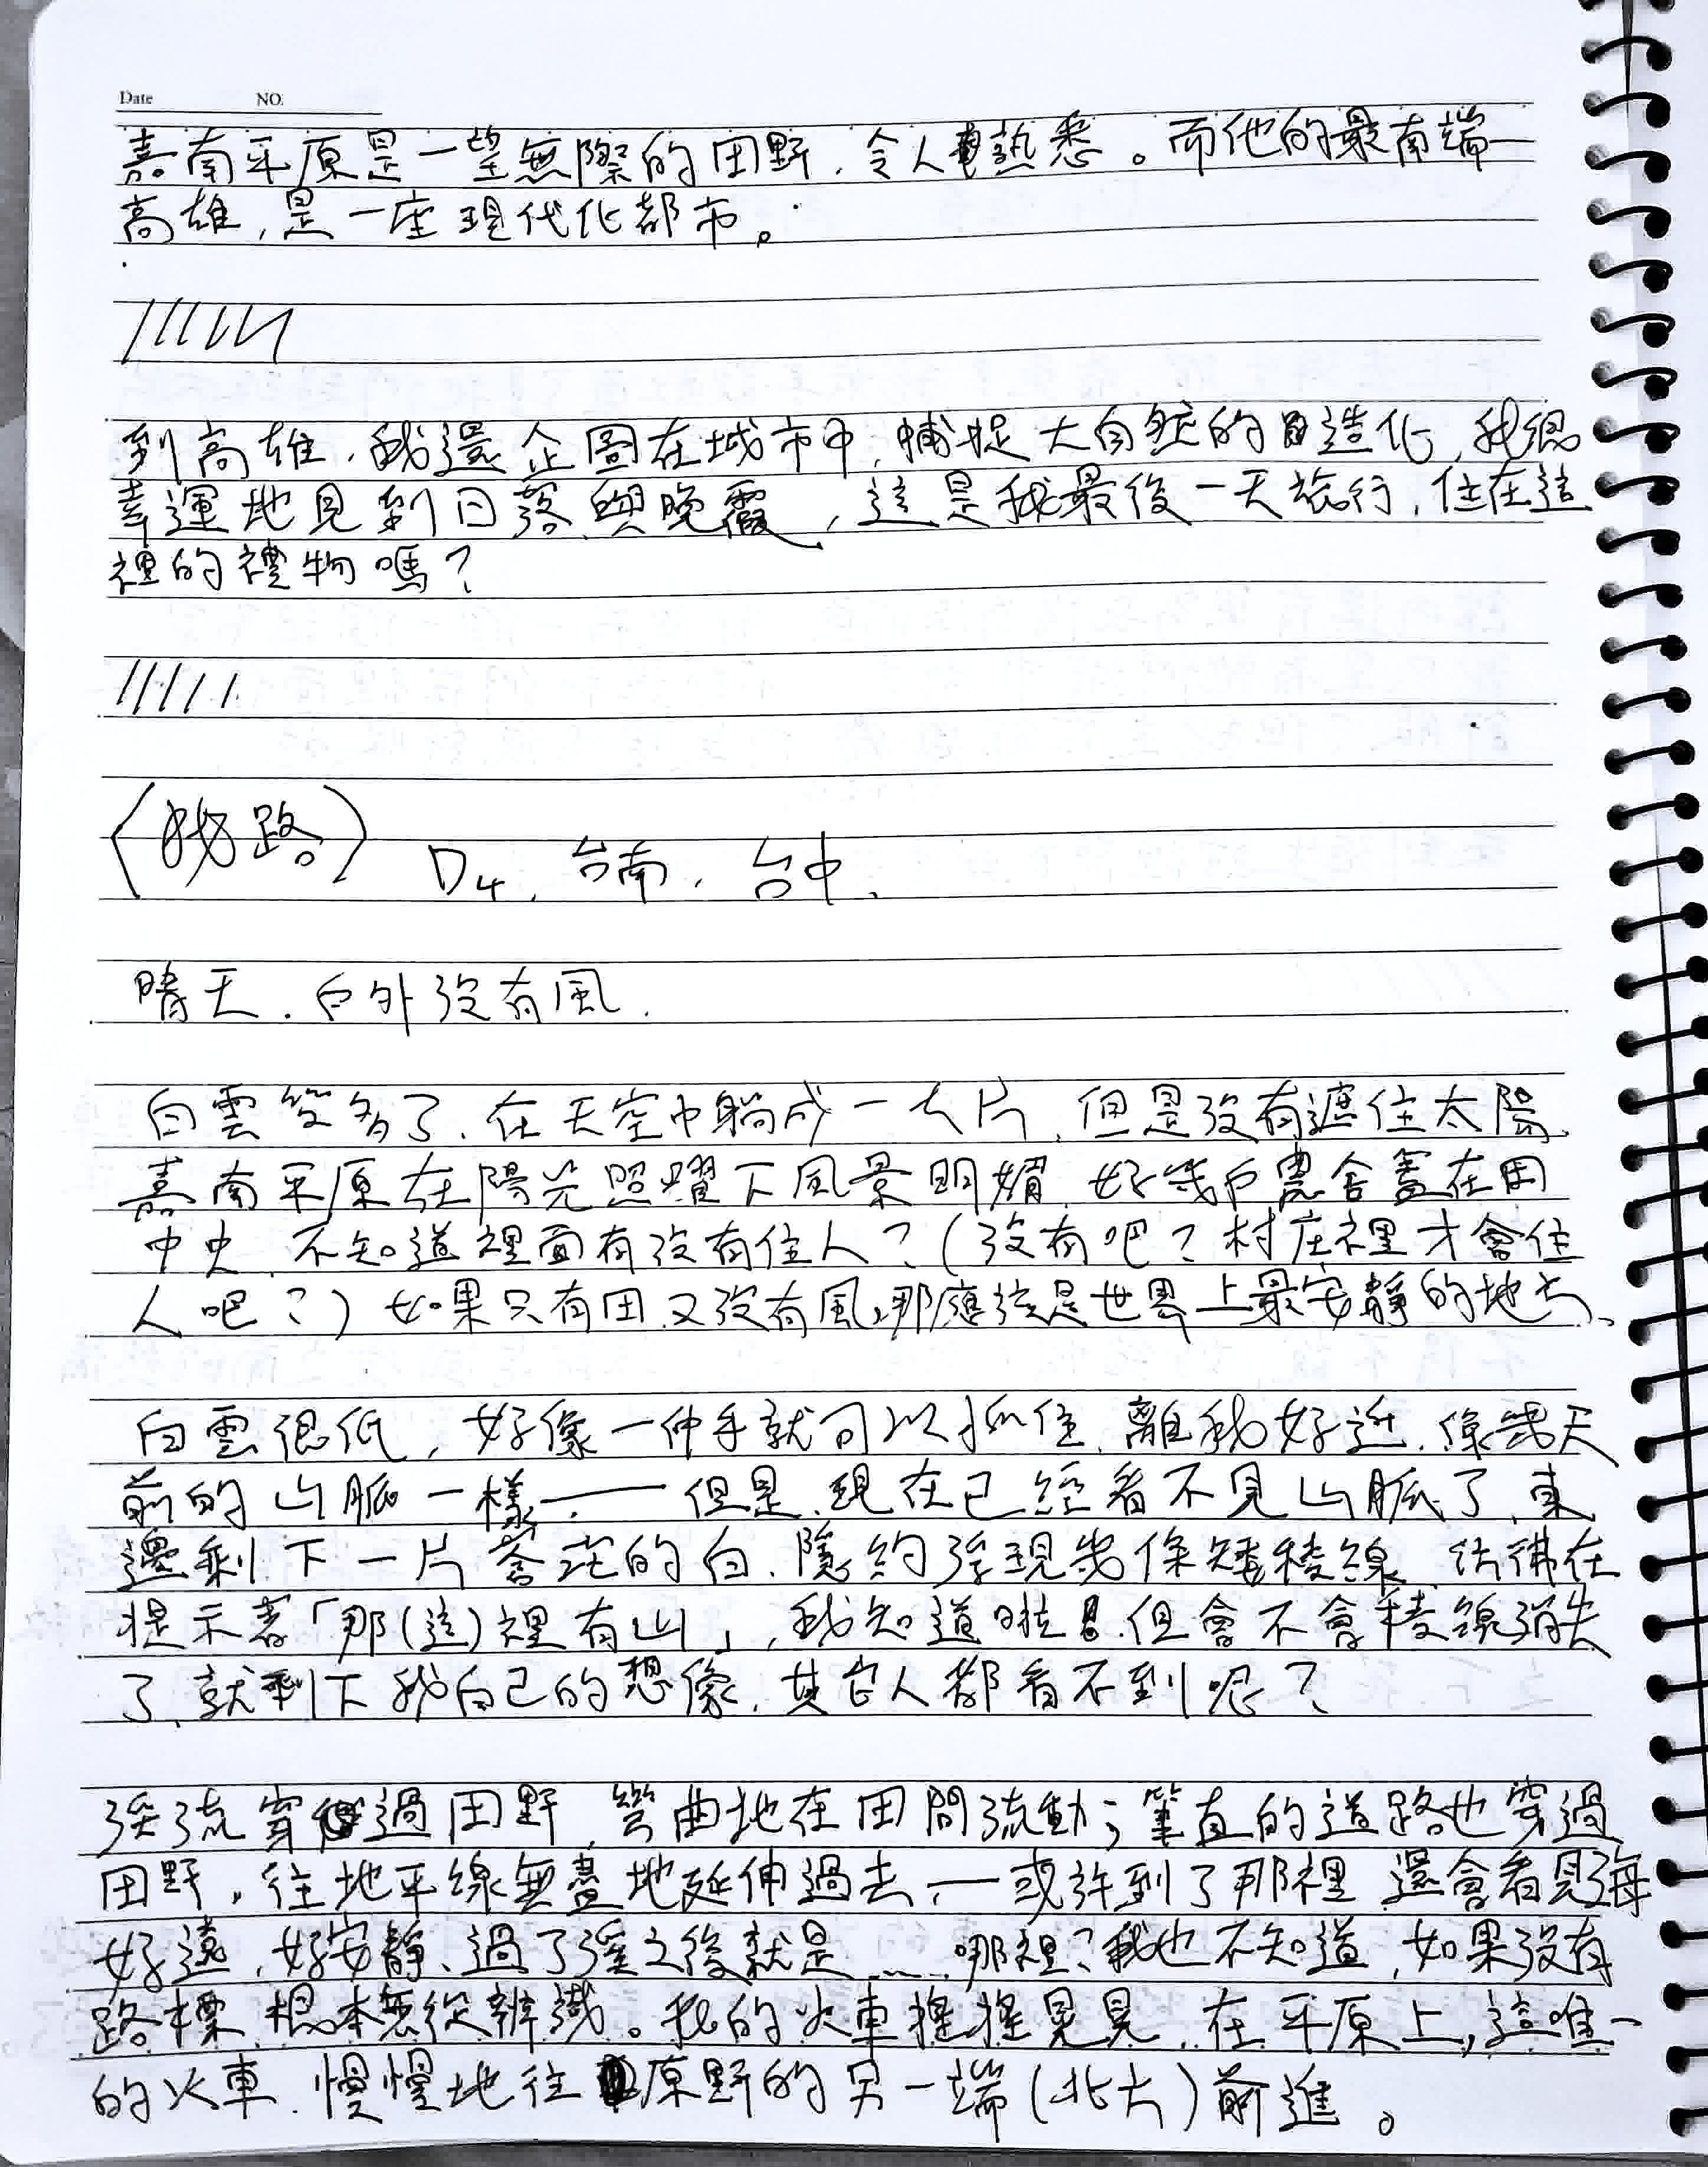 Date NO.
嘉南平原是一望無際的田野,令人熟悉。而他的最南端—
高雄,是一座現代化都市。
到高雄,我還企圖在城市中,捕捉大自然的造化,我很
幸運地見到日落與晚霞,這是我最後一天旅行,住在這
裡的禮物嗎?
〈我路〉 D4. 台南. 台中.
晴天. 戶外沒有風.
白雲變多了.在天空中躺成一大片,但是沒有遮住太陽.
嘉南平原在陽光照耀下風景明媚.好幾戶農舍蓋在田
中央.不知道裡面有沒有住人?(沒有吧?村庄裡才會住
人吧?)如果只有田又沒有風,那應該是世界上最安靜的地方、
白雲很低,好像一伸手就可以抓住.離我好近.像幾天
前的山脈一樣.——但是.現在已經看不見山脈了,東
邊剩下一片蒼茫的白.隱約浮現幾條矮稜線.彷彿在
提示著「那(這)裡有山」,我知道啦!但會不會稜線消失
了,就剩下我自己的想像,其它人都看不到呢?
溪流穿過田野,彎曲地在田間流動;筆直的道路也穿過
田野,往地平線無盡地延伸過去,—或許到了那裡 還會看見海
好遠,好安靜、過了溪之後就是……哪裡?我也不知道,如果沒有
路標.根本無從辨識。我的火車搖搖晃晃.在平原上,這唯一
的火車.慢慢地往原野的另一端(北方)前進。